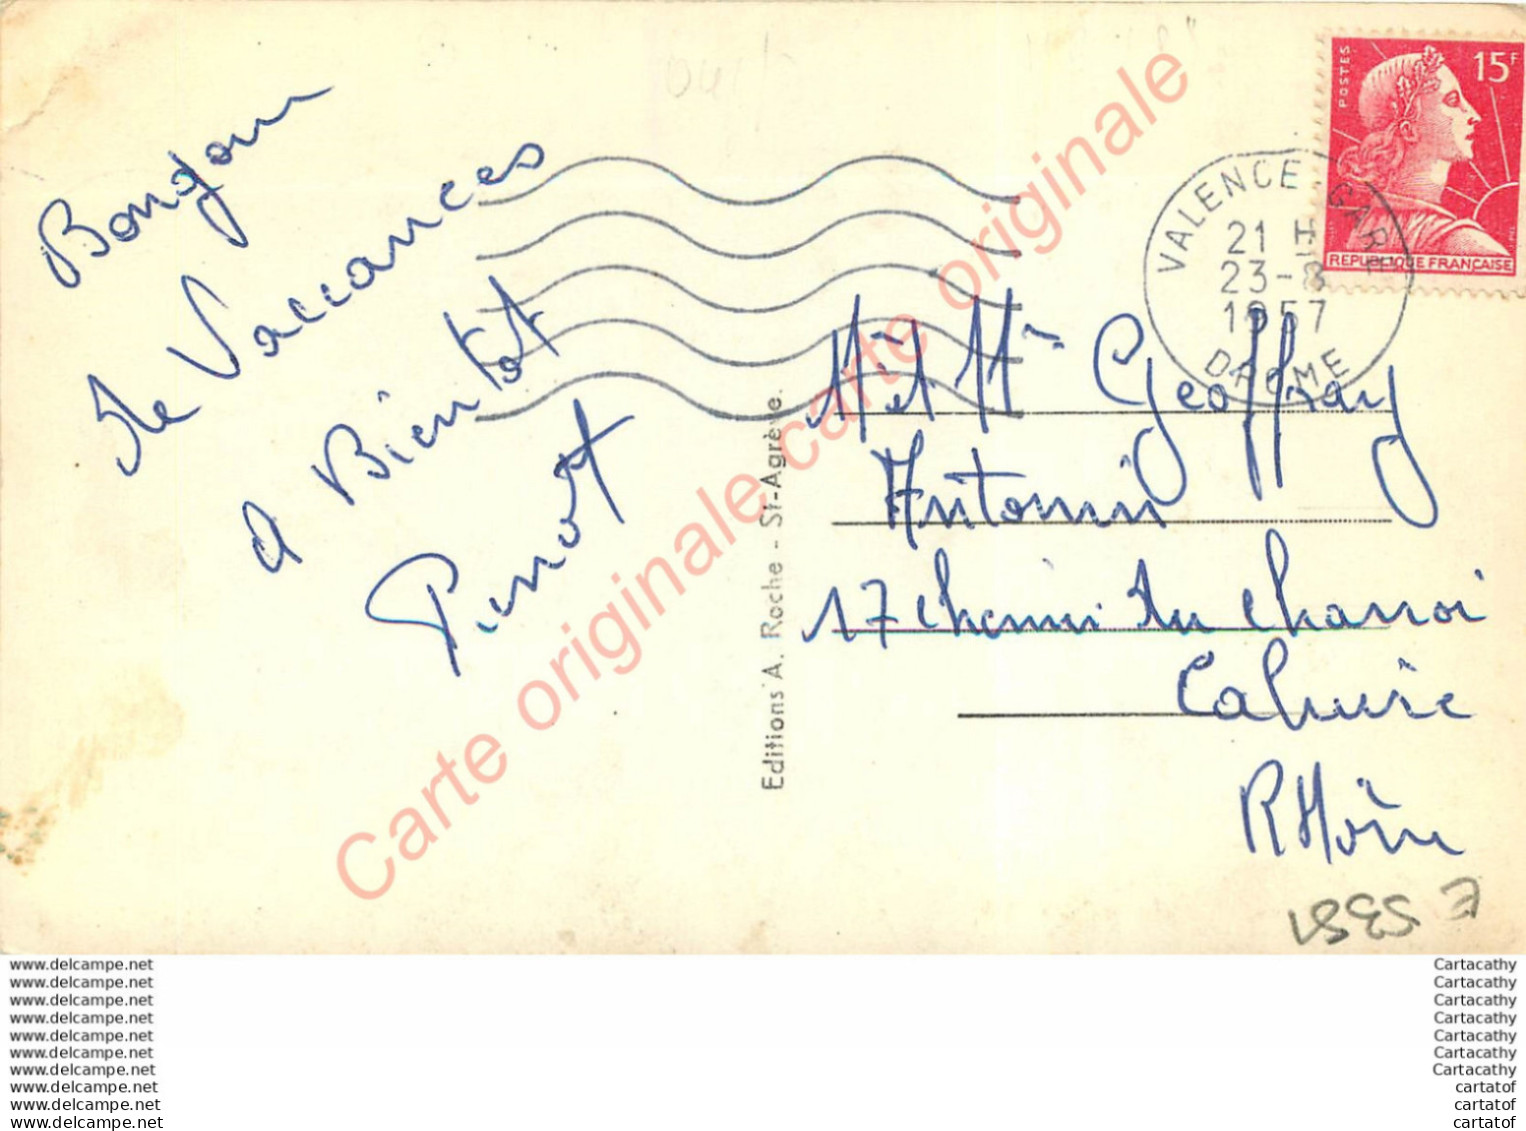 Bonjour
de Vaccances
a Bientot
Pinot
Editions A. Roche - St-Agrève.
POSTES
15F
REPUBLIQUE FRANÇAISE
VALENCE-GARE
21 H
23-8
1957
DROME
Mr et Mme Geoffray
Antonin
17 chemin du charroi
Caluire
RHône
Carte originale carte originale
www.delcampe.net
www.delcampe.net
www.delcampe.net
www.delcampe.net
www.delcampe.net
www.delcampe.net
www.delcampe.net
www.delcampe.net
www.delcampe.net
www.delcampe.net
Cartacathy
Cartacathy
Cartacathy
Cartacathy
Cartacathy
Cartacathy
Cartacathy
cartatof
cartatof
cartatof